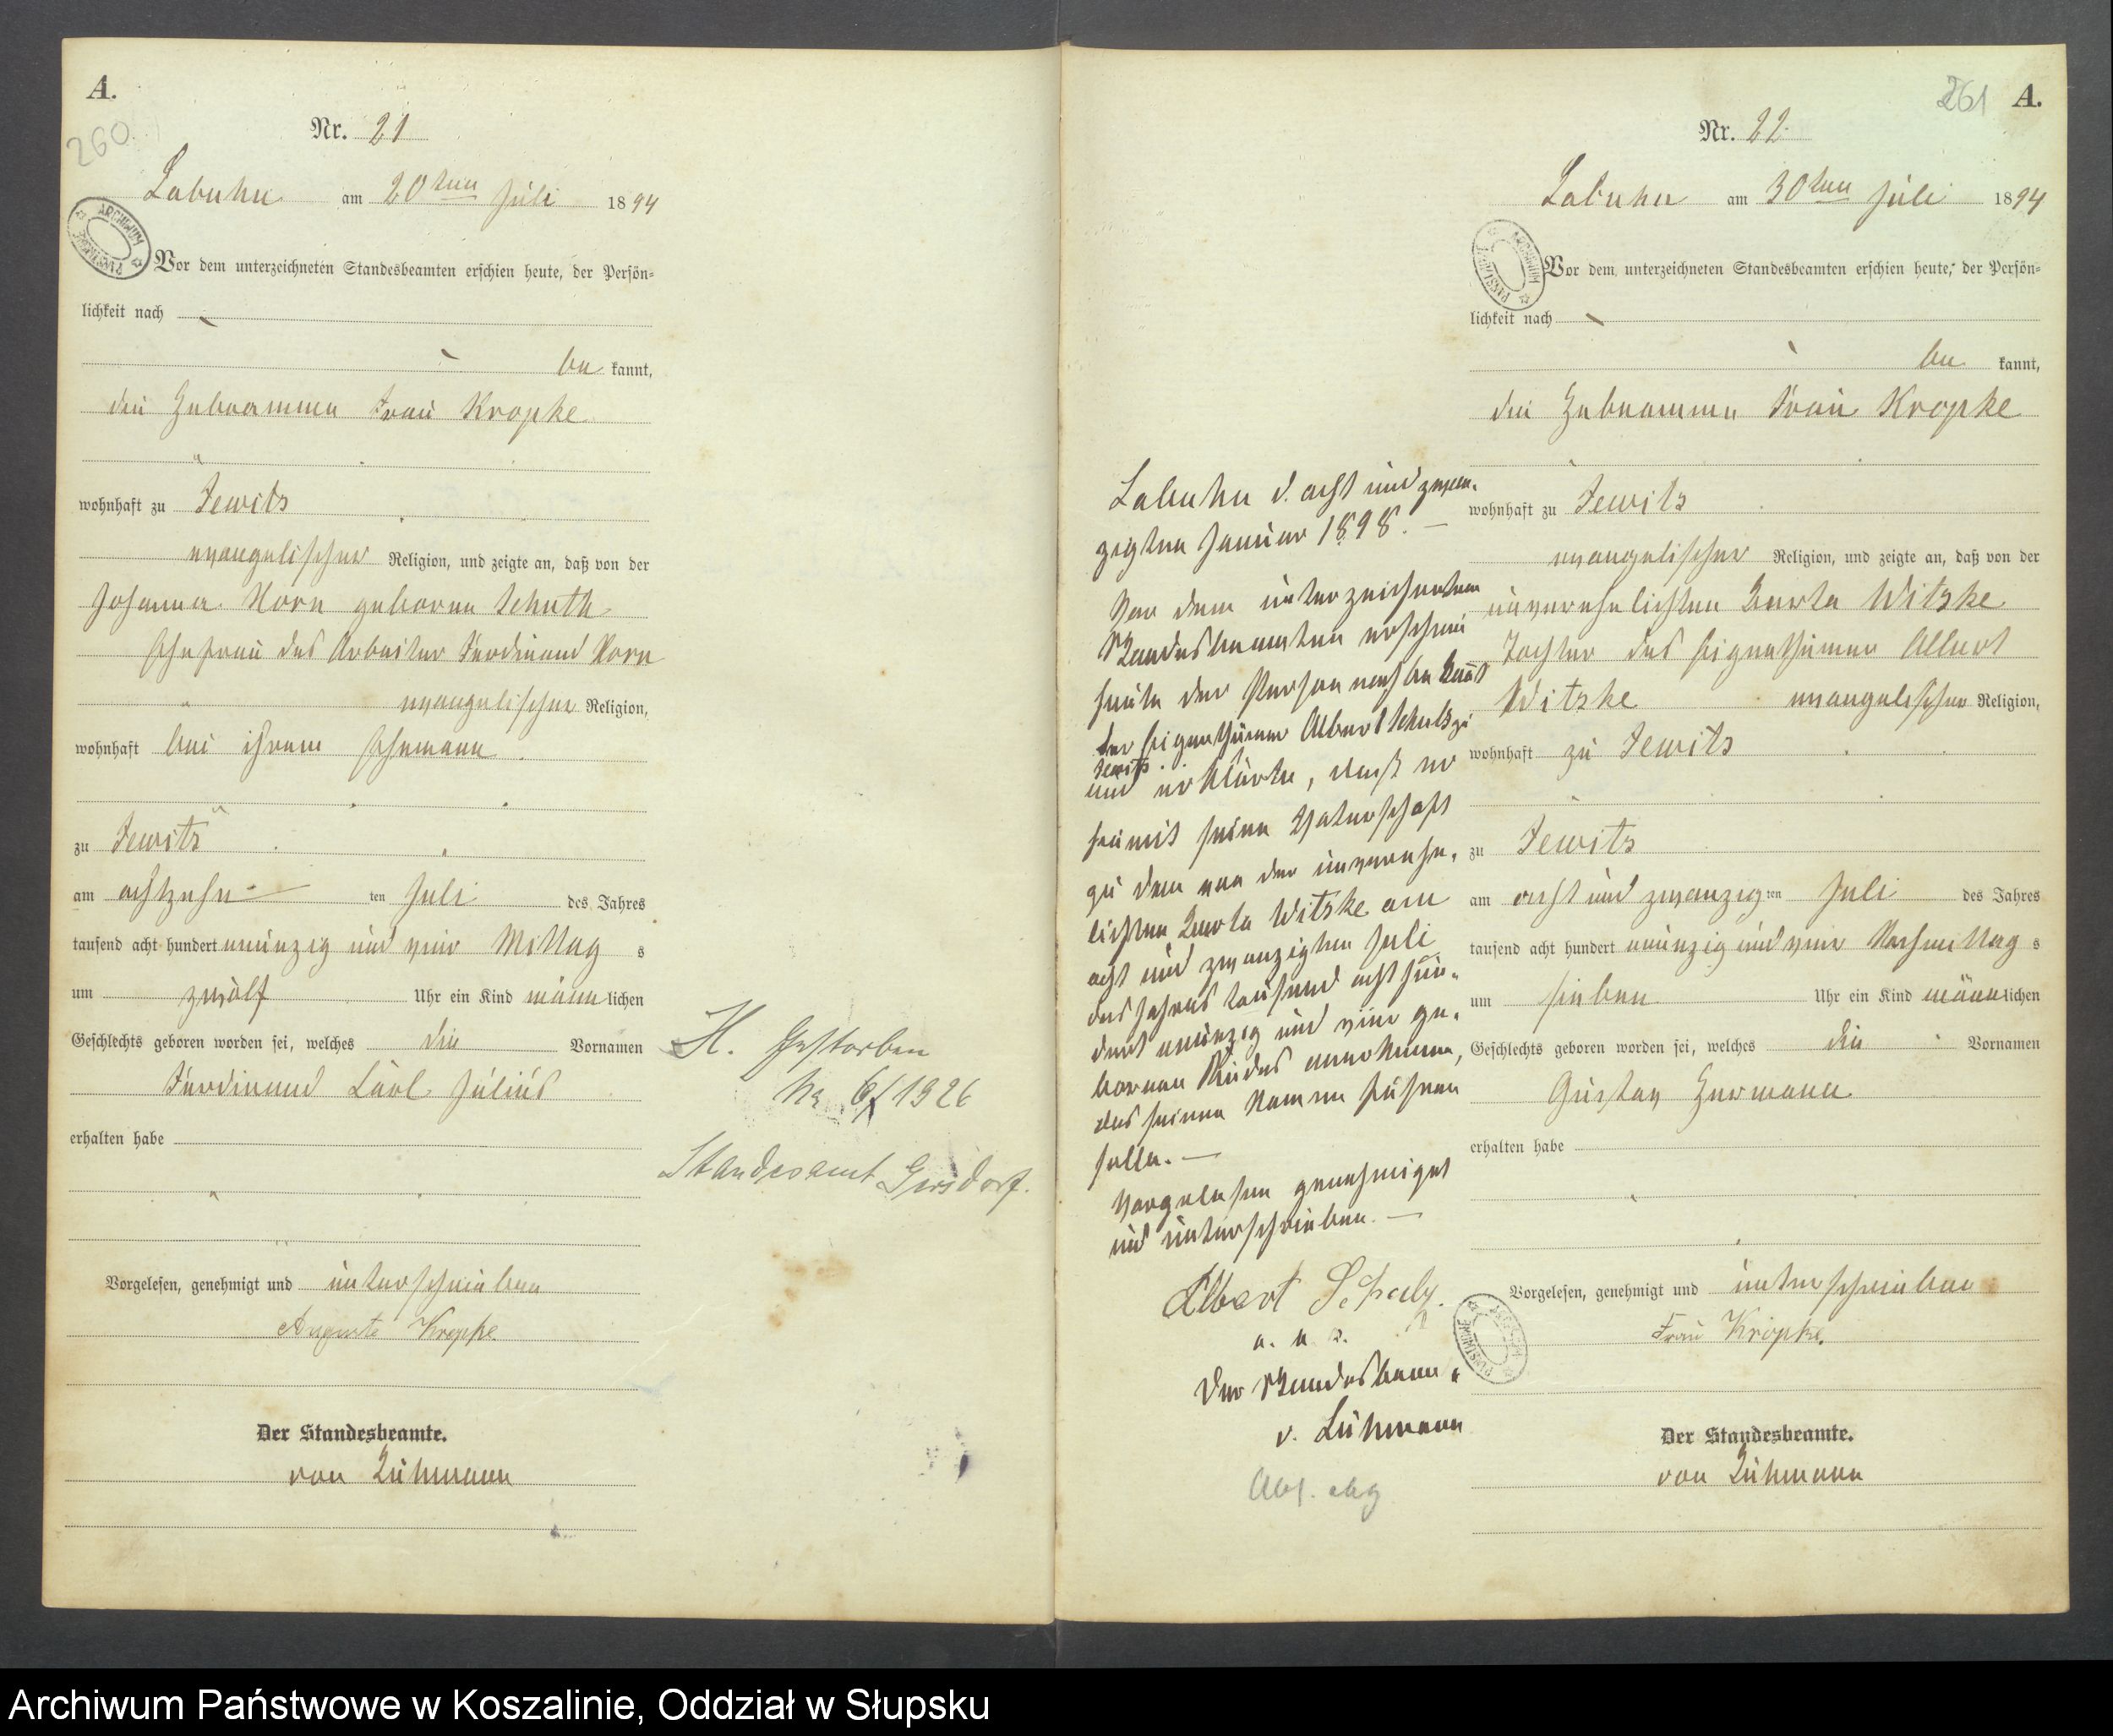 A.
260
Nr. 21
Labuhn am 20ten Juli 1894
Vor dem unterzeichneten Standesbeamten erschien heute, der Persön=
lichkeit nach
be kannt,
die Hebeamme Frau Kropke
wohnhaft zu Jewitz
evangelischer Religion, und zeigte an, daß von der
Johanna Korn geborene Schuth
Ehefrau des Arbeiter Ferdinand Korn
evangelischer Religion,
wohnhaft bei ihrem Ehemann
zu Jewitz
am achtzehn ten Juli des Jahres
tausend acht hundert neunzig und vier Mittag s
um zwölf Uhr ein Kind männ lichen
Geschlechts geboren worden sei, welches die Vornamen
Ferdinand Carl Julius
erhalten habe
Vorgelesen, genehmigt und unterschrieben
Auguste Kropke
Der Standesbeamte.
von Lühmann
H. Gestorben
Nr 6/1926
Standesamt
ARCHIWUM PAŃSTWOWE
261 A.
Nr. 22
Labuhn am 30ten Juli 1894
Vor dem unterzeichneten Standesbeamten erschien heute, der Persön=
lichkeit nach
be kannt,
die Hebeamme Frau Kropke
wohnhaft zu Jewitz
evangelischer Religion, und zeigte an, daß von der
unverehelichten Berta Witzke
Tochter des Eigenthümer Albert
Witzke evangelischer Religion,
wohnhaft zu Jewitz
zu Jewitz
am acht und zwanzig ten Juli des Jahres
tausend acht hundert neunzig und vier Nachmittag s
um sieben Uhr ein Kind männ lichen
Geschlechts geboren worden sei, welches die Vornamen
Gustav Hermann
erhalten habe
Vorgelesen, genehmigt und unterschrieben
Frau Kropke.
Der Standesbeamte.
von Lühmann
Labuhn d. acht und zwan-
zigten Januar 1898. —
Vor dem unterzeichneten
Standesbeamten erschien
heute der Person nach bekannt
der Eigenthümer Albert Schulz zu
Jewitz
und erklärte, daß er
hiermit seine Vaterschaft
zu dem von der unverehe-
lichten Berta Witzke am
acht und zwanzigten Juli
des Jahres tausend acht hun-
dert neunzig und vier ge-
borenen Kindes anerkenne,
das seinen Namen führen
solle. —
Vorgelesen genehmiget
und unterschrieben. —
Albert Schulz.
a. u. s.
Der Standesbeam.
v. Lühmann
ARCHIWUM PAŃSTWOWE
Archiwum Państwowe w Koszalinie, Oddział w Słupsku